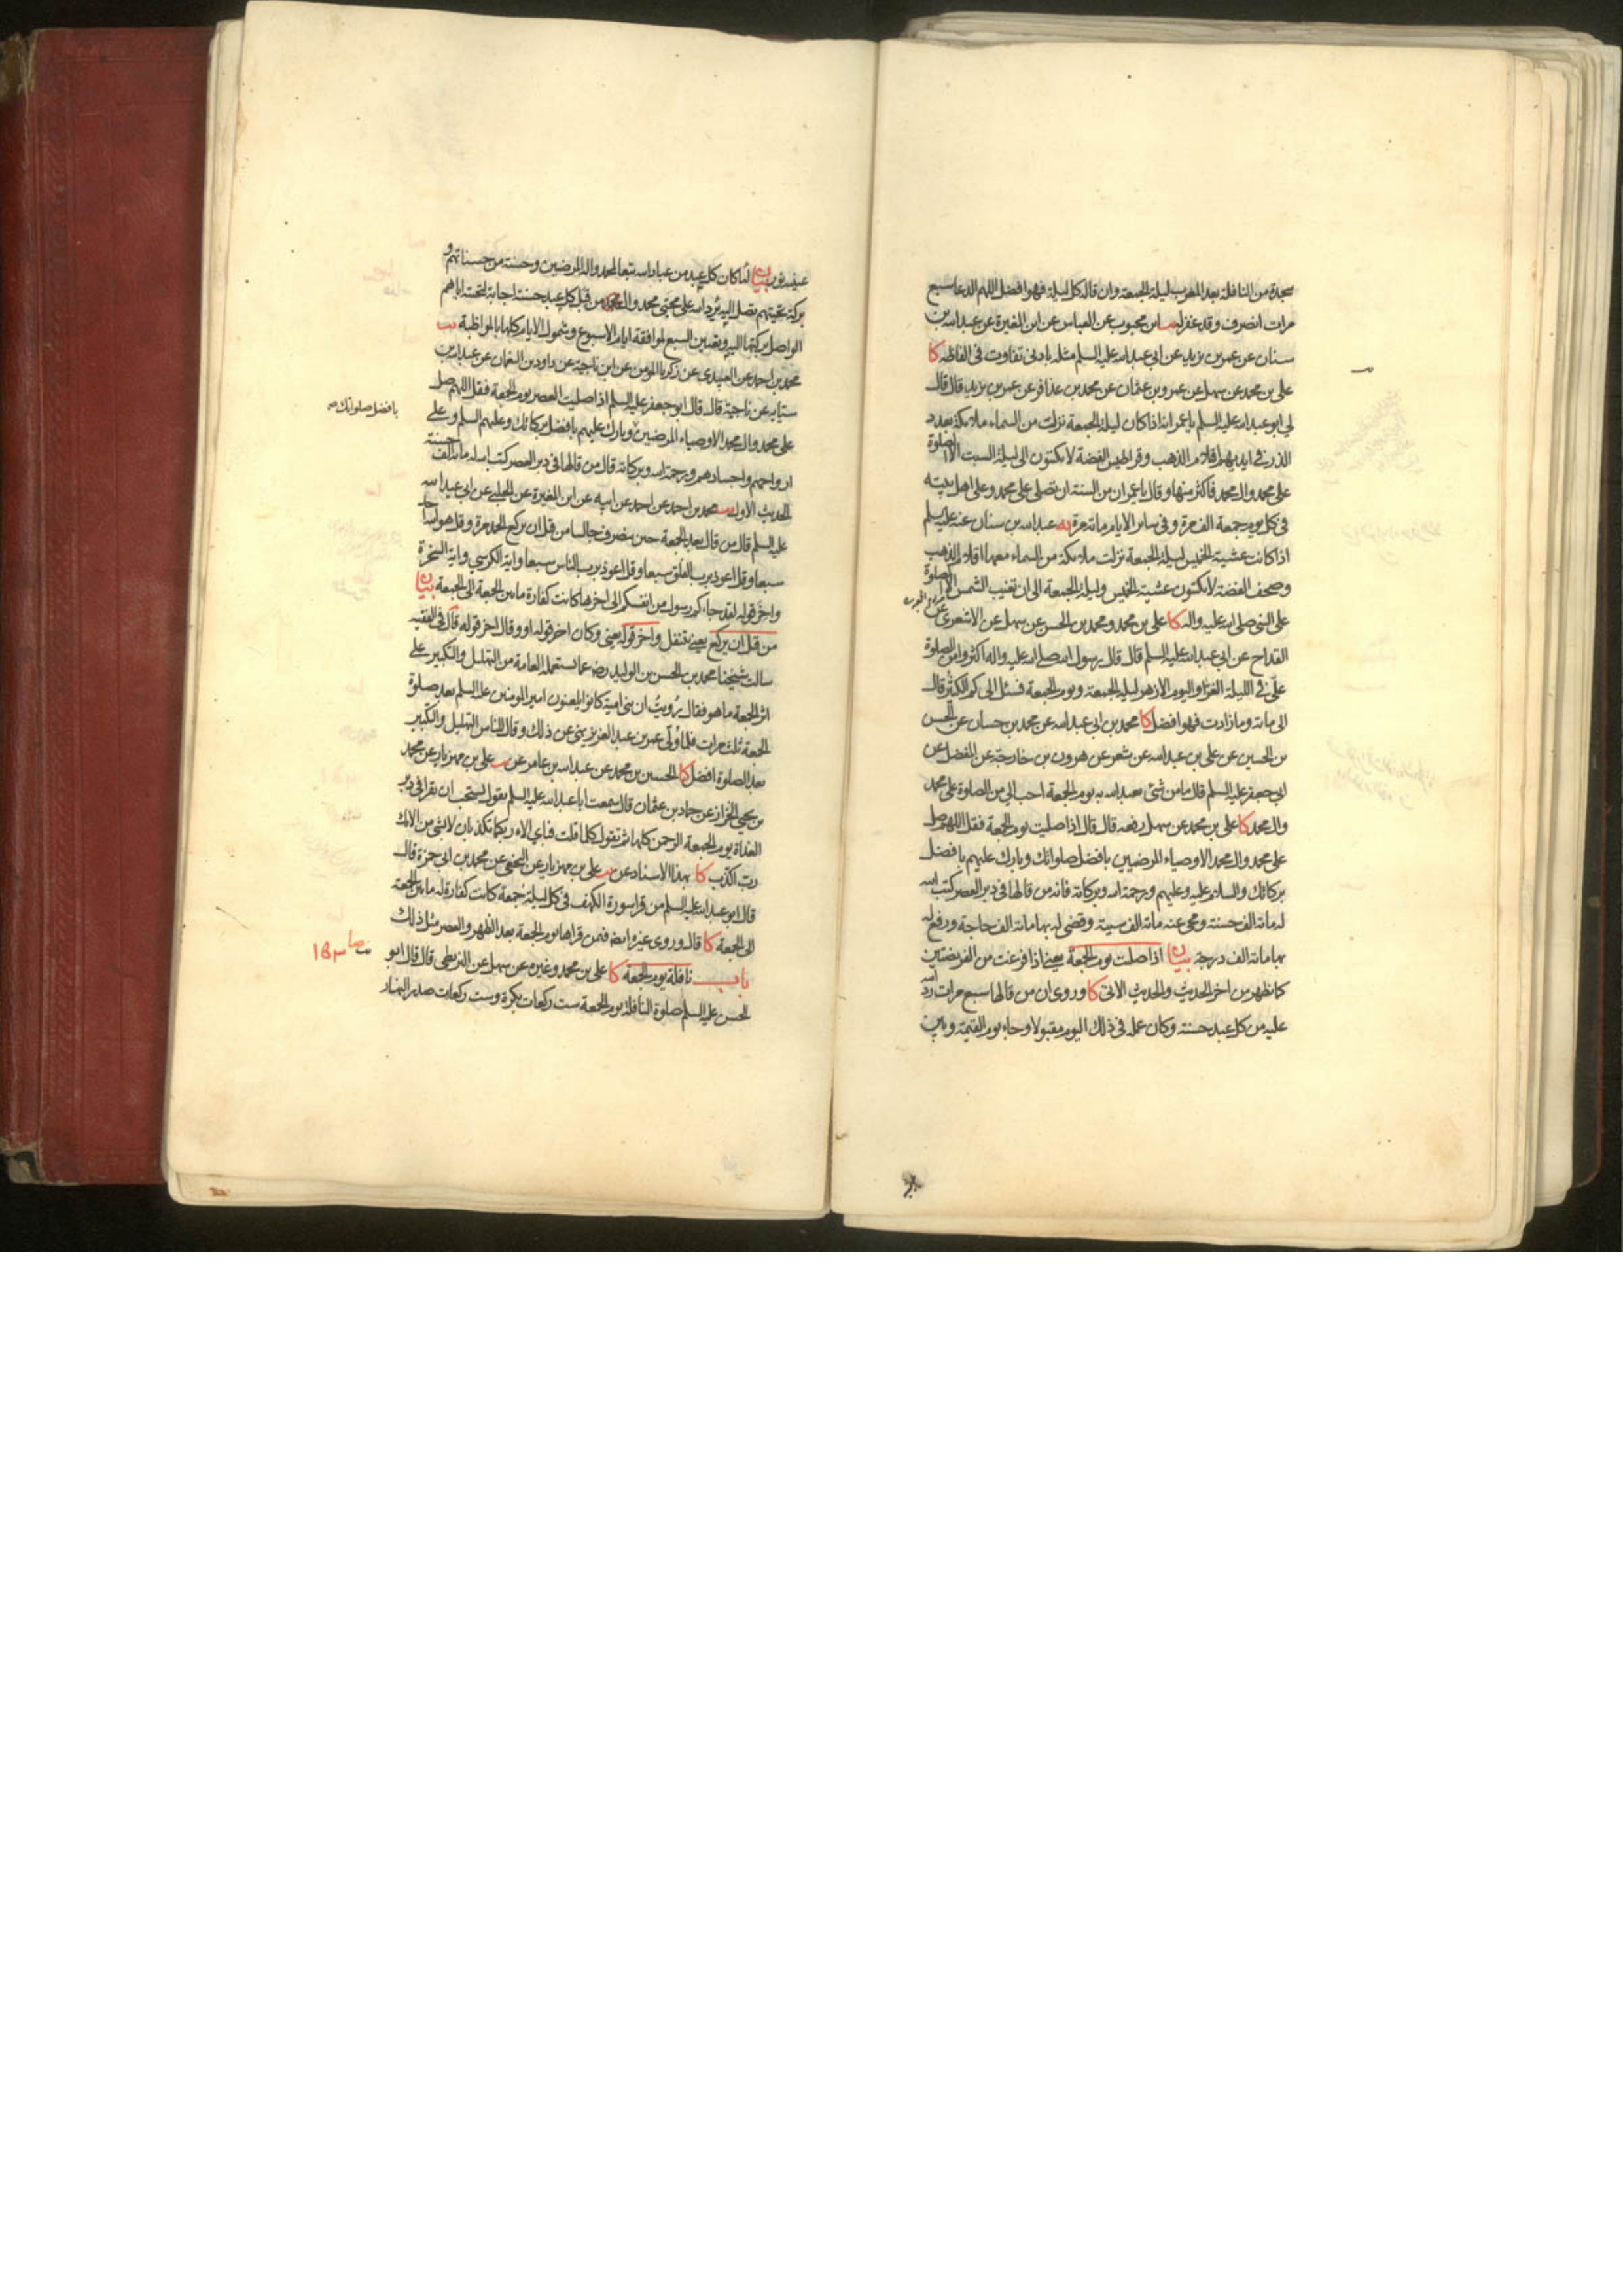 سجدة من النافلة بعد المغرب ليلة الجمعة وان قاله كل ليلة فهو افضل اللهم الدعا سبع
مرات انصرف وقد غفر له يب ابن محبوب عن العباس عن ابن المغيرة عن عبد الله بن
سنان عن عمر بن يزيد عن ابي عبد الله عليه السلم مثله بادنى تفاوت في الفاظه كا
علي بن محمد عن سهل عن عمرو بن عثمان عن محمد بن عذافر عن عمر بن يزيد قال قال
لي ابو عبد الله عليه السلم يا عمر انه اذا كان ليلة الجمعة نزلت من السماء ملائكة بعدد
الذر في ايديهم اقلام الذهب وقراطيس الفضة لا يكتبون الى ليلة السبت الا الصلوة
على محمد وال محمد فاكثر منها وقال يا عمر ان من السنة ان تصلي على محمد وعلى اهل بيته
في كل يوم جمعة الف مرة وفي سائر الايام مائة مرة يه عبد الله بن سنان عنه عليه السلم
اذا كانت عشية الخميس ليلة الجمعة نزلت ملائكة من السماء معها اقلام الذهب
وصحف الفضة لا يكتبون عشية الخميس وليلة الجمعة الى ان تغيب الشمس الا الصلوة
على النبي صلى الله عليه واله كا علي بن محمد ومحمد بن الحسن عن سهل عن الاشعري عن
القداح عن ابي عبد الله عليه السلم قال قال رسول الله صلى الله عليه واله اكثروا من الصلوة
علي في الليلة الغرا واليوم الازهر ليلة الجمعة ويوم الجمعة فسئل الى كم الكثير قال
الى مائة وما زادت فهو افضل كا محمد بن ابي عبد الله عن محمد بن حسان عن الحسن
بن الحسين عن علي بن عبد الله عن شعر عن هرون بن خارجة عن المفضل عن
ابي جعفر عليه السلم قال ما من شئ يعبد الله به يوم الجمعة احب الي من الصلوة على محمد
وال محمد كا علي بن محمد عن سهل رفعه قال قال اذا صليت يوم الجمعة فقل اللهم صل
على محمد وال محمد الاوصياء المرضيين بافضل صلواتك وبارك عليهم بافضل
بركاتك والسلام عليه وعليهم ورحمة الله وبركاته فانه من قالها في دبر العصر كتب الله
له مائة الف حسنة ومحى عنه مائة الف سيئة وقضى له بها مائة الف حاجة ورفع له
بها مائة الف درجة بيان اذا صليت يوم الجمعة يعني اذا فرغت من الفريضتين
كما يظهر من اخر الحديث والحديث الاتي كا وروى ان من قالها سبع مرات رد الله
عليه من كل عبد حسنة وكان عمله في ذلك اليوم مقبولا وجاء يوم القيمة وبين
عينيه نور بيان لما كان كل عبد من عباد الله تبعا لمحمد واله المرضيين وحسنته من حسناتهم و
بركة تحيتهم تصل اليه يرد الله على محيي محمد وال محمد من قبل كل عبد حسنة اجابة لتحيته اياهم
الواصل بركتها اليه وتعيين السبع لموافقة ايام الاسبوع وشمول الايام كلها بالمواظبة يب
محمد بن احمد عن العبيدي عن زكريا المؤمن عن ابن ناجية عن داود بن النعمان عن عبد الله بن
سيابه عن ناجية قال قال ابو جعفر عليه السلم اذا صليت العصر يوم الجمعة فقل اللهم صل
على محمد وال محمد الاوصياء المرضيين وبارك عليهم بافضل بركاتك وعليهم السلم وعلى
بافضل صلواتك
ارواحهم واجسادهم ورحمة الله وبركاته قال من قالها في دبر العصر كتب الله له مائة الف حسنة
الحديث الاول يب محمد بن احمد عن احمد عن ابيه عن ابن المغيرة عن الحلبي عن ابي عبد الله
عليه السلم قال من قال بعد الجمعة حين ينصرف جالسا من قبل ان يركع الحمد مرة وقل هو الله احد
سبعا وقل اعوذ برب الفلق سبعا وقل اعوذ برب الناس سبعا واية الكرسي واية السخرة
واخر قوله لقد جاءكم رسول من انفسكم الى اخرها كانت كفارة ما بين الجمعة الى الجمعة بيان
من قبل ان يركع يعني يتنفل واخر قوله يعني وكان اخر قوله او وقال اخر قوله قال في الفقيه
سالت شيخنا محمد بن الحسن بن الوليد رضه عما يستعمله العامة من التهليل والتكبير على
اثر الجمعة ما هو فقال رويت ان بني امية كانوا يلعنون امير المؤمنين عليه السلم بعد صلوة
الجمعة ثلث مرات فلما ولي عمر بن عبد العزيز نهى عن ذلك وقال للناس التهليل والتكبير
بعد الصلوة افضل كا الحسين بن محمد عن عبد الله بن عامر عن يب علي بن مهزيار عن محمد
بن يحيى الخزاز عن حماد بن عثمان قال سمعت ابا عبد الله عليه السلم يقول يستحب ان يقرا في دبر
الغداة يوم الجمعة الرحمن كلها ثم تقول كلما قلت فباي الاء ربكما تكذبان لا بشئ من الائك
رب اكذب كا بهذا الاسناد عن يب علي بن مهزيار عن النخعي عن محمد بن ابي حمزة قال
قال ابو عبد الله عليه السلم من قرا سورة الكهف في كل ليلة جمعة كانت كفارة له ما بين الجمعة
الى الجمعة كا قال وروى غيره ايضا فيمن قراها يوم الجمعة بعد الظهر والعصر مثل ذلك
باب نافلة يوم الجمعة كا علي بن محمد وغيره عن سهل عن البزنطي قال قال ابو
الحسن عليه السلم صلوة النافلة يوم الجمعة ست ركعات بكرة وست ركعات صدر النهار